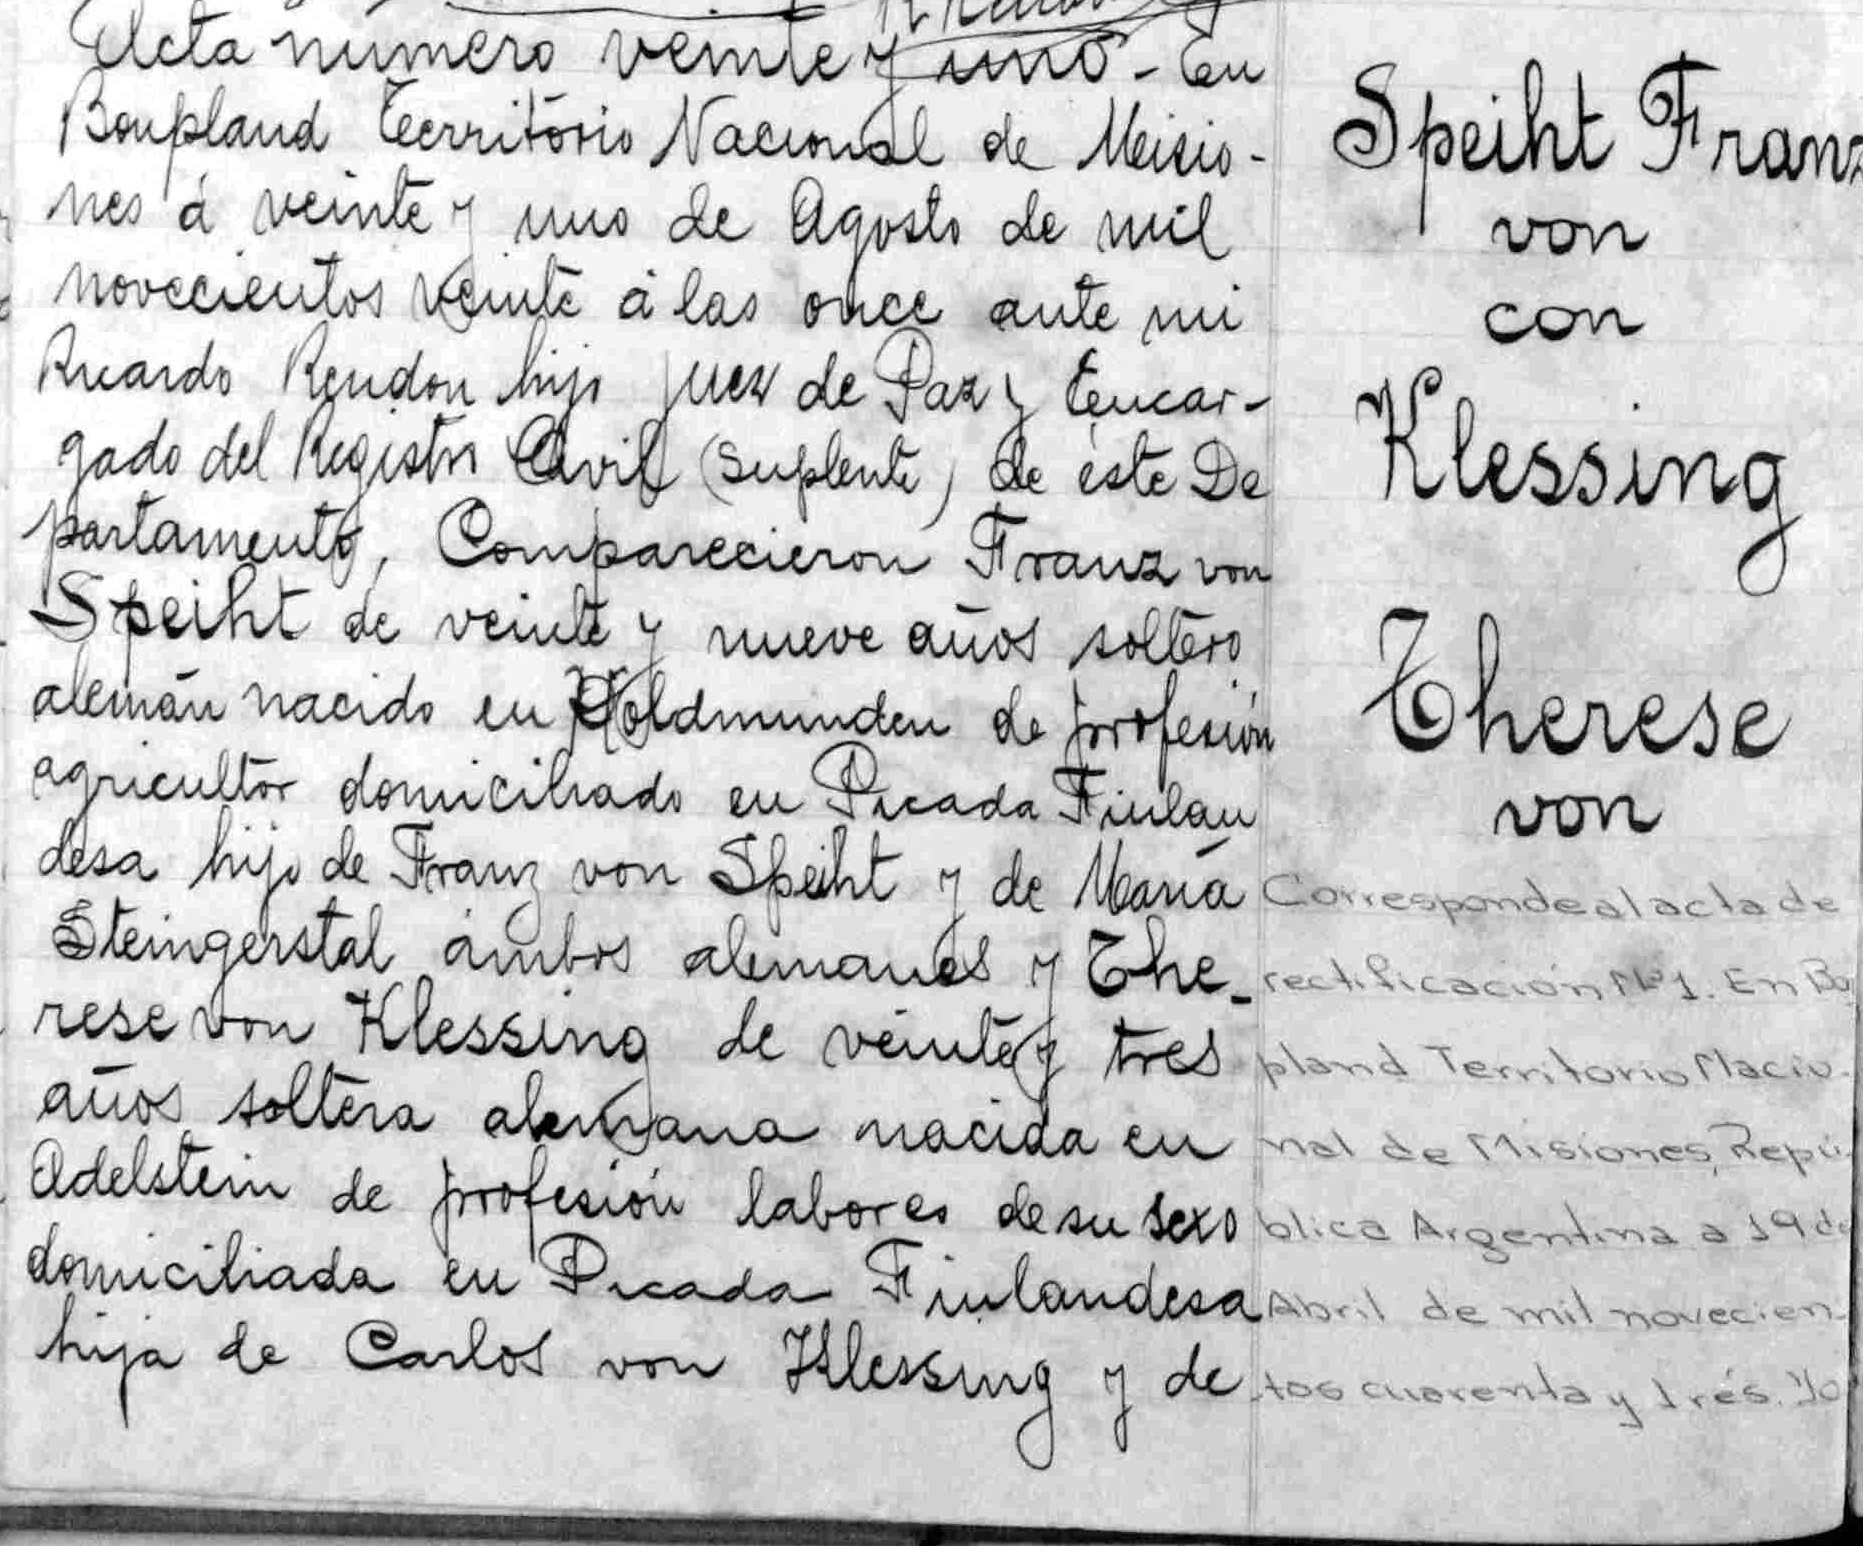 Acta número veinte y uno - En
Bonpland Território Nacional de Misio-
nes á veinte y uno de Agosto de mil
novecientos veinte á las once ante mi
Ricardo Rendon hijo Juez de Paz y Encar-
gado del Registro Civil (Suplente) de éste De
partamento, Comparecieron Franz von
Speiht de veinte y nueve años soltero
alemán nacido en Holdmunden de profesión
agricultor domiciliado en Picada Finlan
desa hijo de Franz von Speiht y de María
Steingerstal ambos alemanes y The-
rese von Klessing de veinte y tres
años soltera alemana nacida en
Adelstein de profesión labores de su sexo
domiciliada en Picada Finlandesa
hija de Carlos von Klessing y de
Speiht Franz
von
con
Klessing
Therese
von
Corresponde al acta de
rectificación Nº 1. En Bo
pland Territorio Nacio-
nal de Misiones, Repú-
blica Argentina a 19 de
Abril de mil novecien-
tos cuarenta y trés. Yo